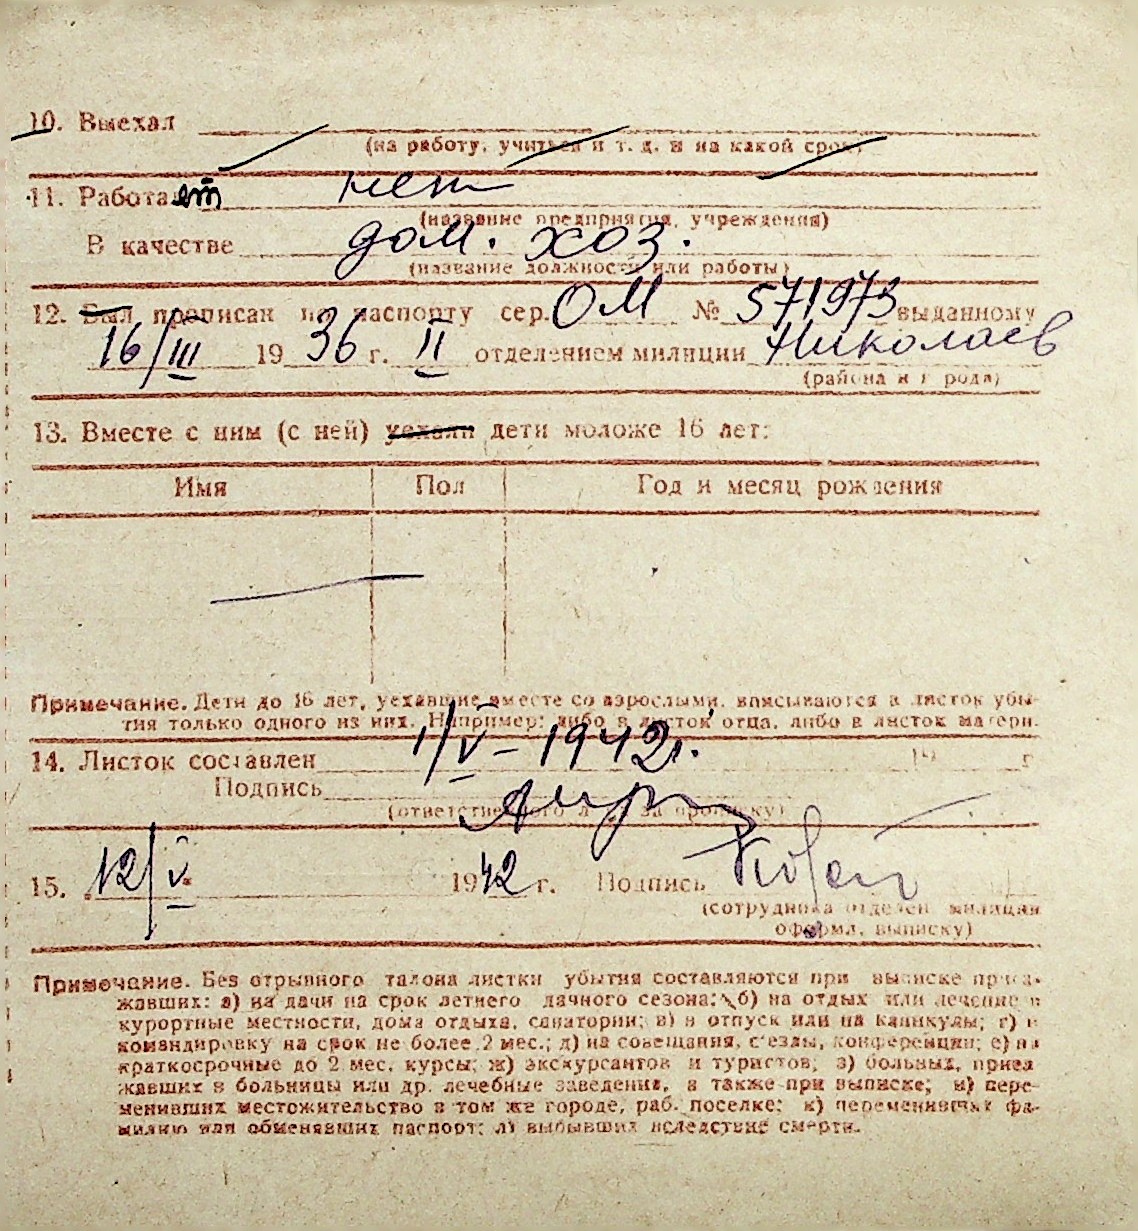 10. Выехал
(на работу, учиться и т. д. и на какой срок)
11. Работает нет
(название предприятия, учреждения)
В качестве дом. хоз.
(название должности или работы)
12. Был прописан по паспорту сер. ОМ № 571973 выданному
16/III 1936 г. II отделением милиции Николаев
(района и города)
13. Вместе с ним (с ней) уехали дети моложе 16 лет:
Имя Пол Год и месяц рождения
Примечание. Дети до 16 лет, уехавшие вместе со взрослыми, вписываются в листок убы-
тия только одного из них. Например: либо в листок отца, либо в листок матери.
14. Листок составлен 1/V – 1942 г. 19 г
Подпись
(ответственного за прописку)
15. 12/V 1942 г. Подпись
(сотрудника отделен. милиции
оформл. выписку)
Примечание. Без отрывного талона листки убытия составляются при выписке приез-
жавших: а) на дачи на срок летнего дачного сезона; б) на отдых или лечение в
курортные местности, дома отдыха, санатории; в) в отпуск или на каникулы; г) в
командировку на срок не более 2 мес.; д) на совещания, съезды, конференции; е) на
краткосрочные до 2 мес. курсы; ж) экскурсантов и туристов; з) больных, приез
жавших в больницы или др. лечебные заведения, а также при выписке; и) пере-
менивших местожительство в том же городе, раб. поселке; к) переменивших фа-
милию или обменявших паспорт; л) выбывших вследствие смерти.